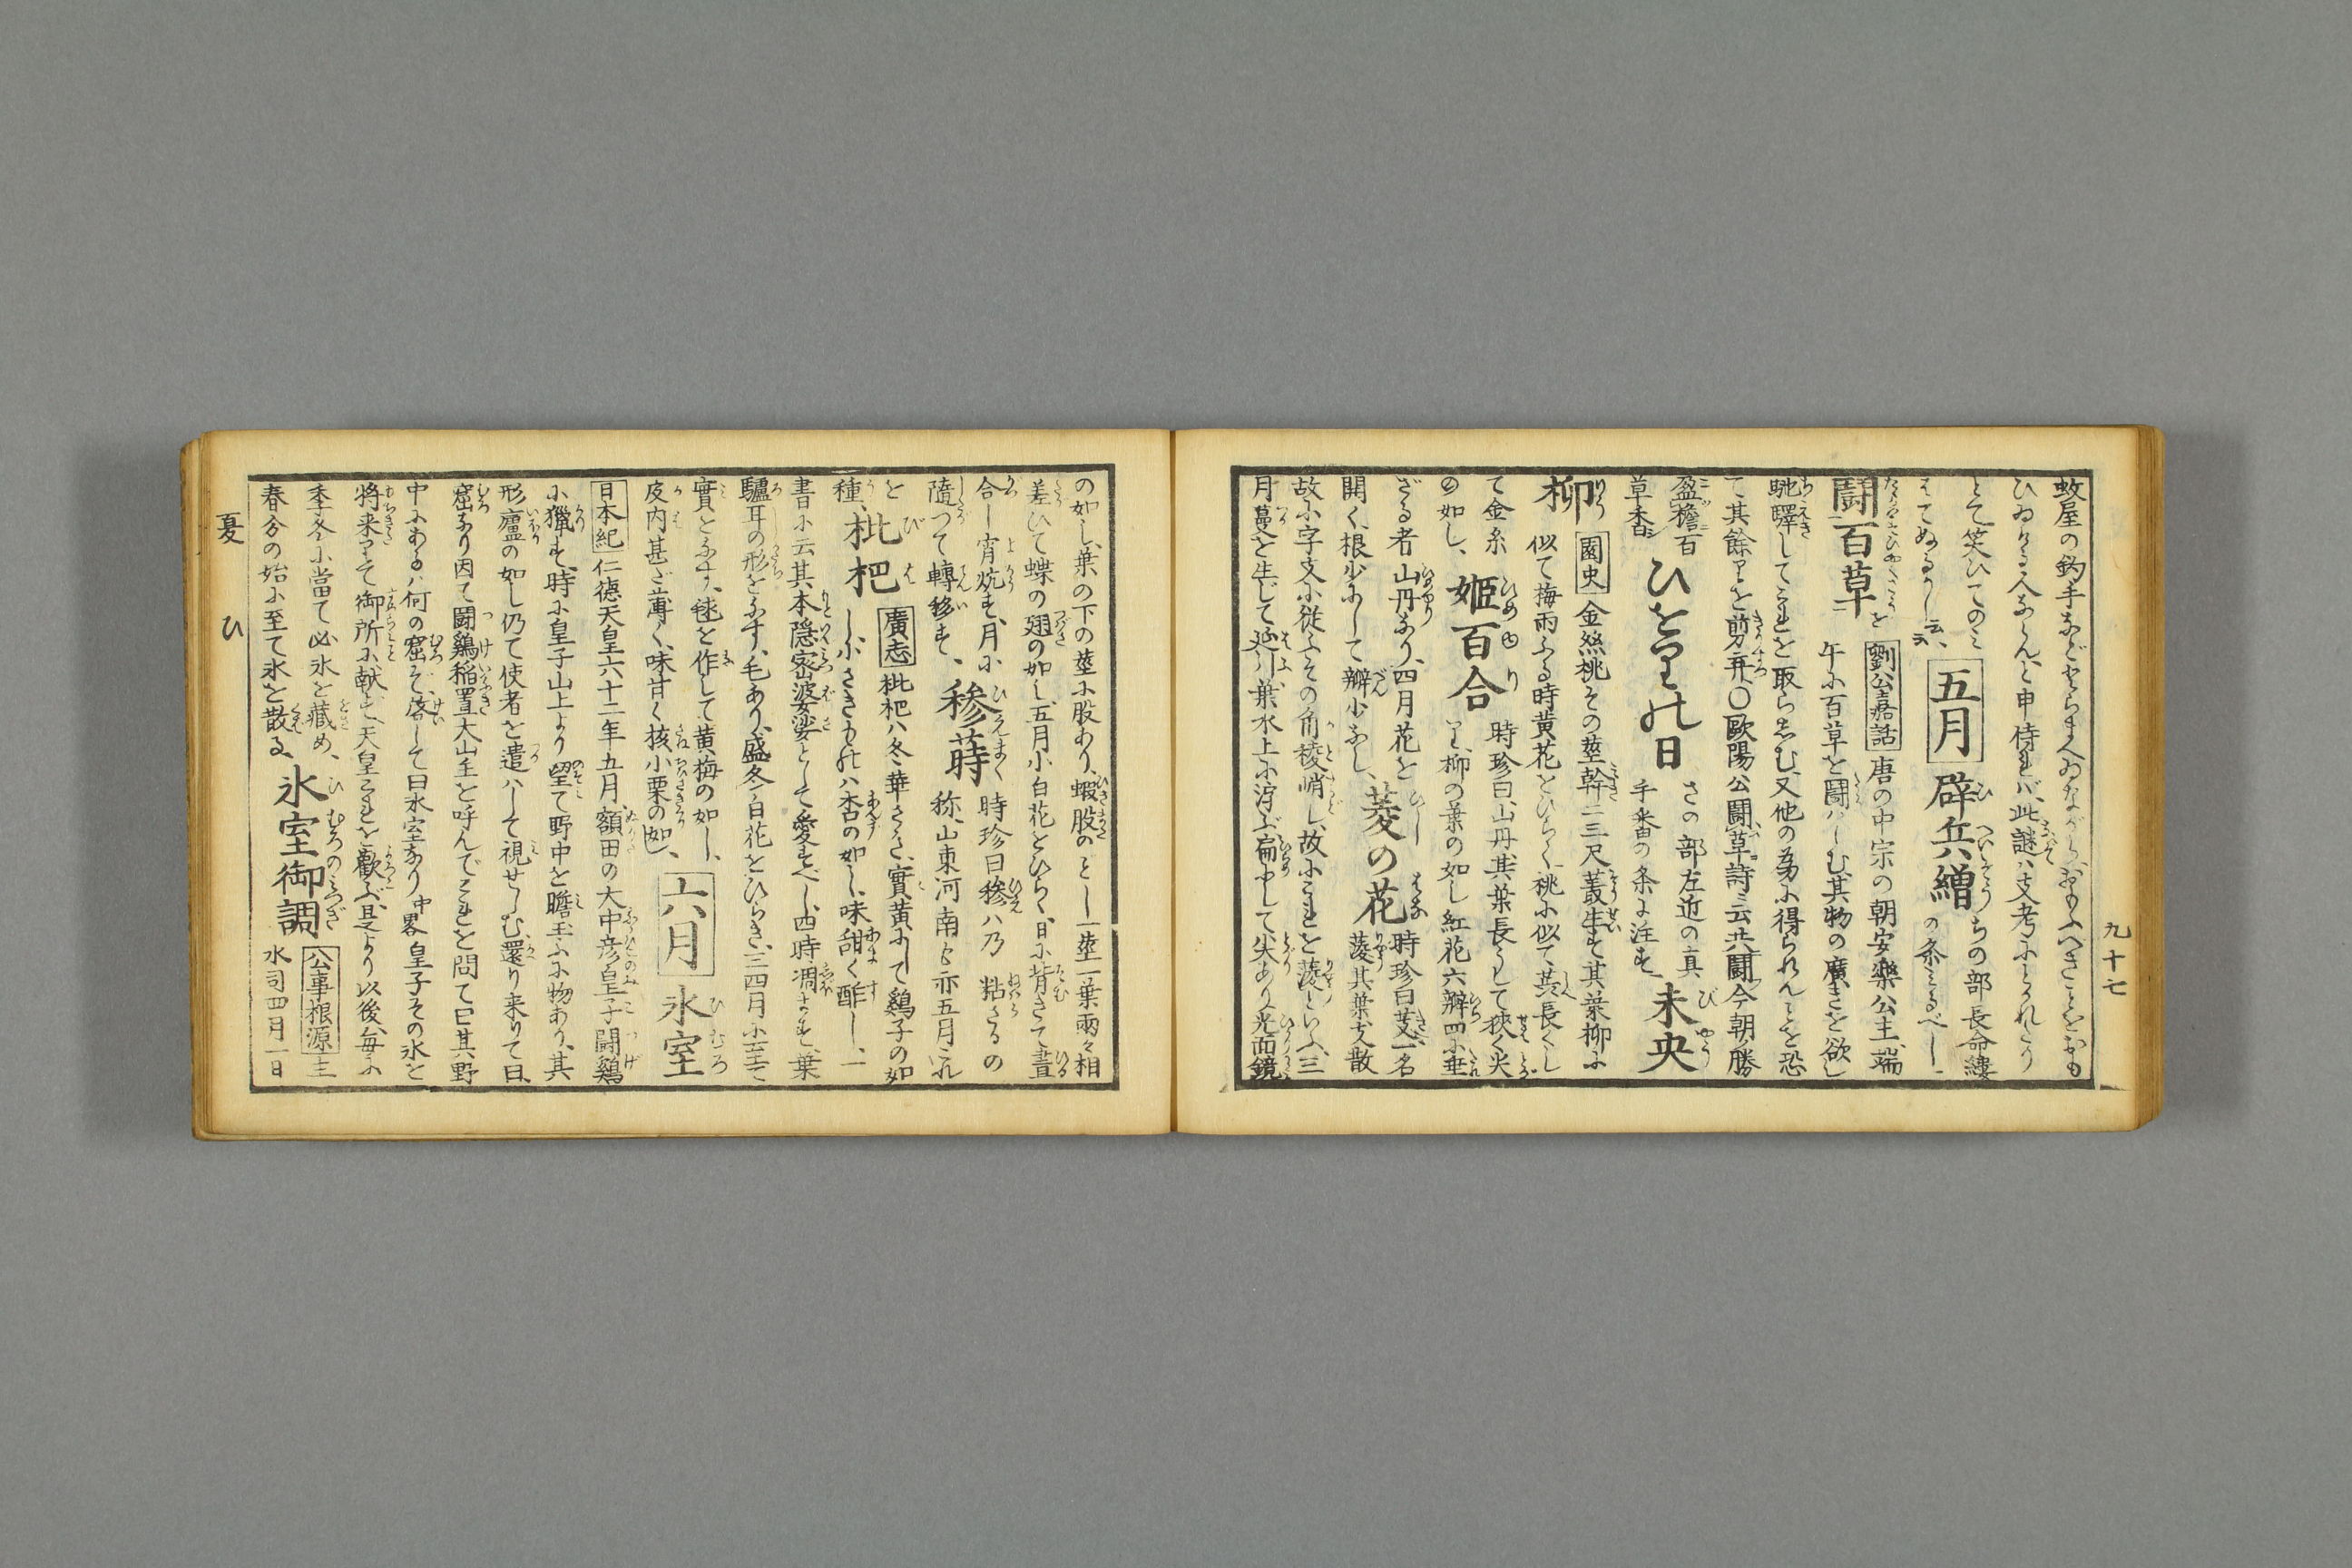 九十七
蚊屋の釣手などせらるゝ人ゐながら、おもふべきことをおも
ひゐける人ならんと申侍れバ、此謎ハ支考にとかれたり
とて笑ひてのミ
五月
辟兵繒
ちの部長命縷
の条ミるべし
闘百草
劉公嘉話
唐の中宗の朝安樂公主端
午に百草を闘ハしむ、其物の廣きを欲し
馳驛してこれを取らしむ、又他の為に得られんことを恐
て其餘りを剪弃○歐陽公闘草詩云共闘今朝勝
盈襜百
草香
ひをりの日
さの部左近の真
手番の条に注す
未央
柳
園史
金絲桃その莖幹二三尺叢生す其葉柳に
似て梅雨ふる時黄花をひらく桃に似て、蕋長くし
て金糸
の如し、
姫百合
時珍曰山丹其葉長くして狭く尖
り、柳の葉の如し紅花六瓣四に垂
ざる者山丹なり、四月花を
開く、根少にして瓣小なし、
菱の花
時珍曰芰一名
蔆其葉支散
故に字支に従ふその角稜峭し、故にこれを蔆といふ、三
月蔓を生して延引葉水上に浮ぶ扁にして尖あり光面鏡
の如し、葉の下の莖に股あり、蝦股のごとし一莖一葉兩々相
差ひて蝶の翅の如し、五月小白花をひらく、日に背きて晝
合し宵炕す、月に
隨つて轉移す、
穇蒔
時珍曰穇ハ乃 粘さるの
称、山東河南も亦五月これ
を
種、
枇杷
廣志
枇杷ハ冬華さく、實黄にして鷄子の如
し、小さきものハ杏の如し、味甜く酢し、一
書に云其本隠密婆娑として愛すべし、四時凋まず、葉
驢耳の形をなす、毛あり、盛冬白花をひらき、三四月に至て
實をなす、毬を作して黄梅の如し、
皮内甚ざ薄く、味甘く核小栗の如し、
六月
氷室
日本紀
仁德天皇六十二年五月額田の大中彦皇子闘鷄
に獵す、時に皇子山上より望て野中を瞻玉ふに物あり、其
形廬の如し仍て使者を遣ハして視せしむ、還り来りて曰
窟なり因て闘鷄稲置大山主を呼んでこれを問て曰其野
中にあるハ何の窟ぞ、答して曰氷室なり中畧皇子その氷を
将来りて御所に献ず、天皇これを歓ぶ、是より以後毎に
季冬に當て必氷を藏め、
春分の始に至て氷を散る、
氷室御調
公事根源
主
水司四月一日
夏 ひ